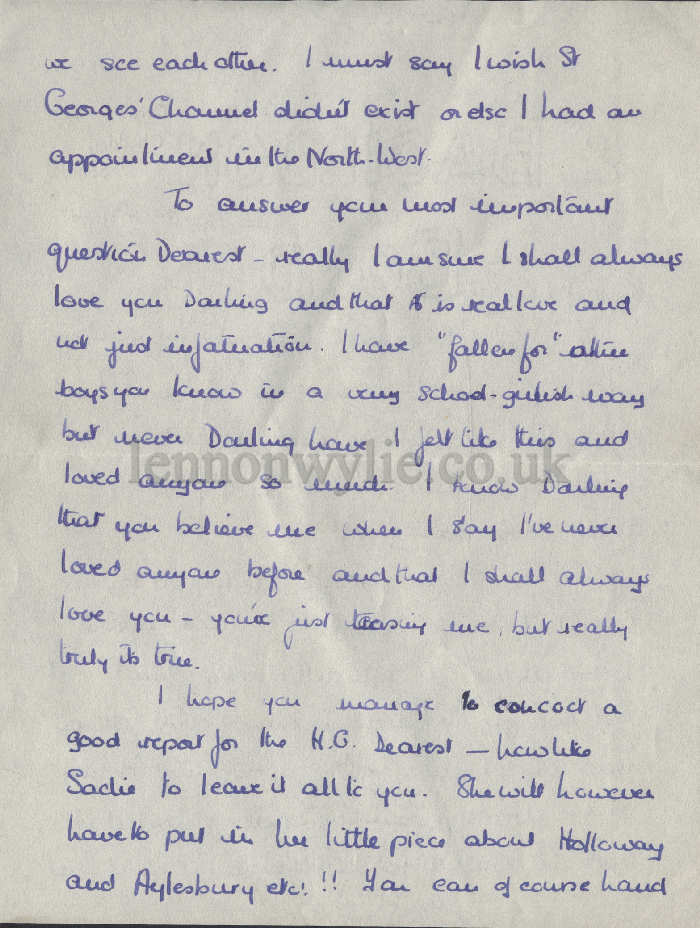 we see each other. I must say I wish St
Georges' Channel didn't exist or else I had an
appointment in the North-West.
To answer your most important
question Dearest - really I am sure I shall always
love you Darling and that it is real love and
not just infatuation. I have "fallen for" other
boys you know in a very school-girlish way
but never Darling have I felt like this and
loved anyone so much. I know Darling
that you believe me when I say I've never
loved anyone before and that I shall always
love you - you're just teasing me, but really
truly its true.
I hope you manage to concoct a
good report for the H.O. Dearest - how like
Sadie to leave it all to you. She will however
have to put in her little piece about Holloway
and Aylesbury etc. !! You can of course hand
lennonwylie.co.uk